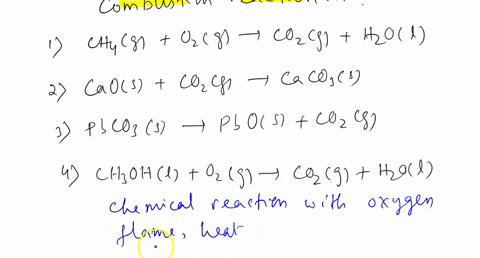 Combustion reaction
1) CH4(g) + O2(g) → CO2(g) + H2O(l)
2) CaO(s) + CO2(g) → CaCO3(s)
3) PbCO3(s) → PbO(s) + CO2(g)
4) CH3OH(l) + O2(g) → CO2(g) + H2O(l)
chemical reaction with oxygen
flame, heat